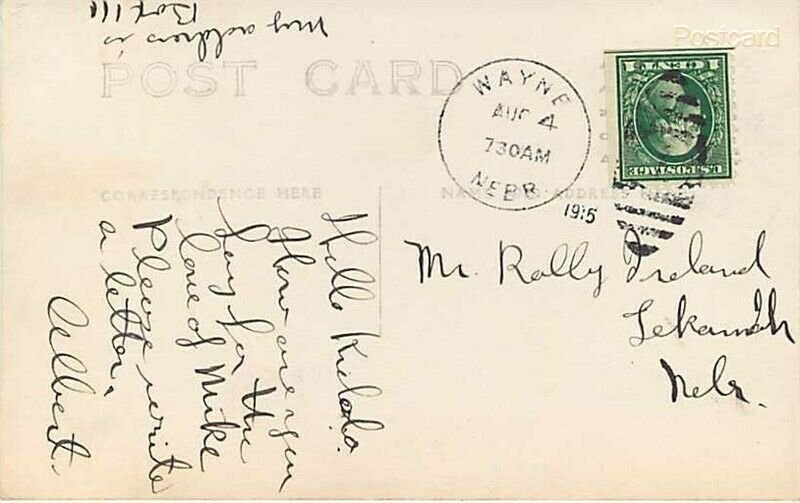 My address is
Box 111
POST CARD
WAYNE
AUG 4
730AM
NEBR.
1915
1 CENT 1
U.S. POSTAGE
Postcard
CORRESPONDENCE HERE
NAME AND ADDRESS HERE
Hello
How are you
for the
love of Mike
Please write
a letter.
Albert.
Mr. Rolly Ireland
Tekamah
Nebr.